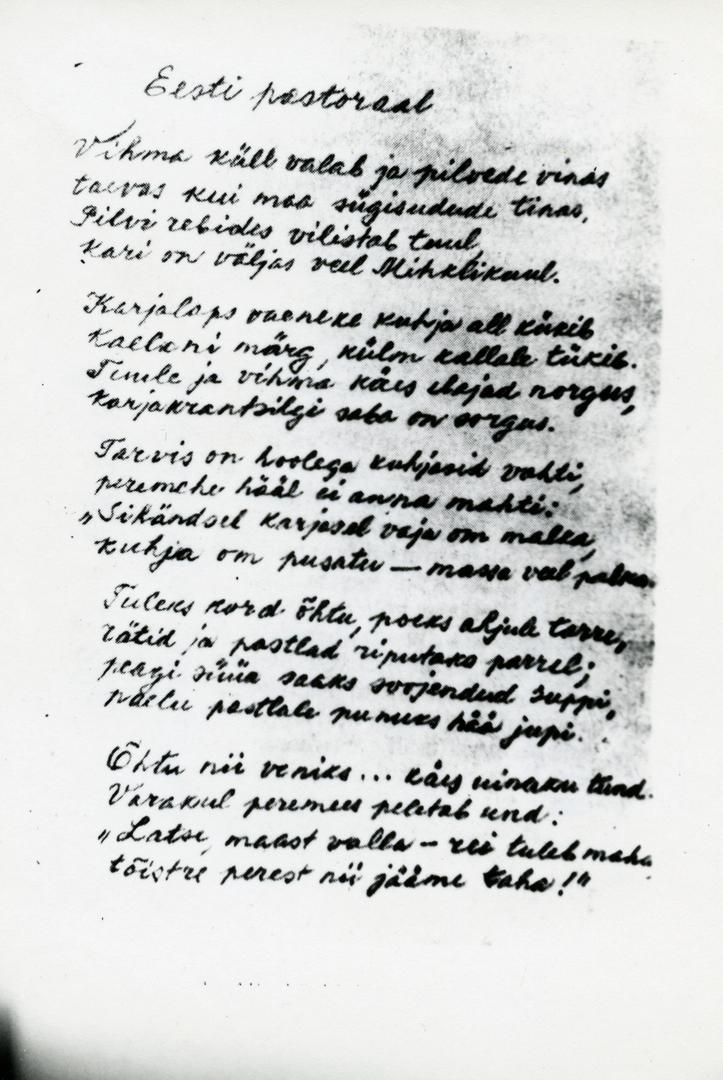 Eesti pastoraal
Vihma küll valab ja pilvede vinas
taevas kui maa sügisudude tinas,
Pilvi rebides vilistab tuul,
kari on väljas veel Mihklikuul.
Karjalaps vaeneke kuhja all kükib
Kaelani märg, külm kallale tükib.
Tuule ja vihma käes elajad norgus,
karjakrantsilgi saba on sorgus.
Tarvis on hoolega kuhjasid vahti,
peremehe hääl ei anna mahti:
„Sikändsel karjasel vaja om malka,
kuhja om pusatu — massa veel palka.
Tuleks kord õhtu, poeks ahjule tarre,
rätid ja pastlad riputaks parrel;
peagi süüa saaks soojendud suppi,
paelu pastlale punuks hää jupi.
Õhtu nii veniks... käes uinaku tund.
Varakul peremees peletab und:
„Latse, maast valla – rei tuleb maha
tõistre perest nii jääme taha!"